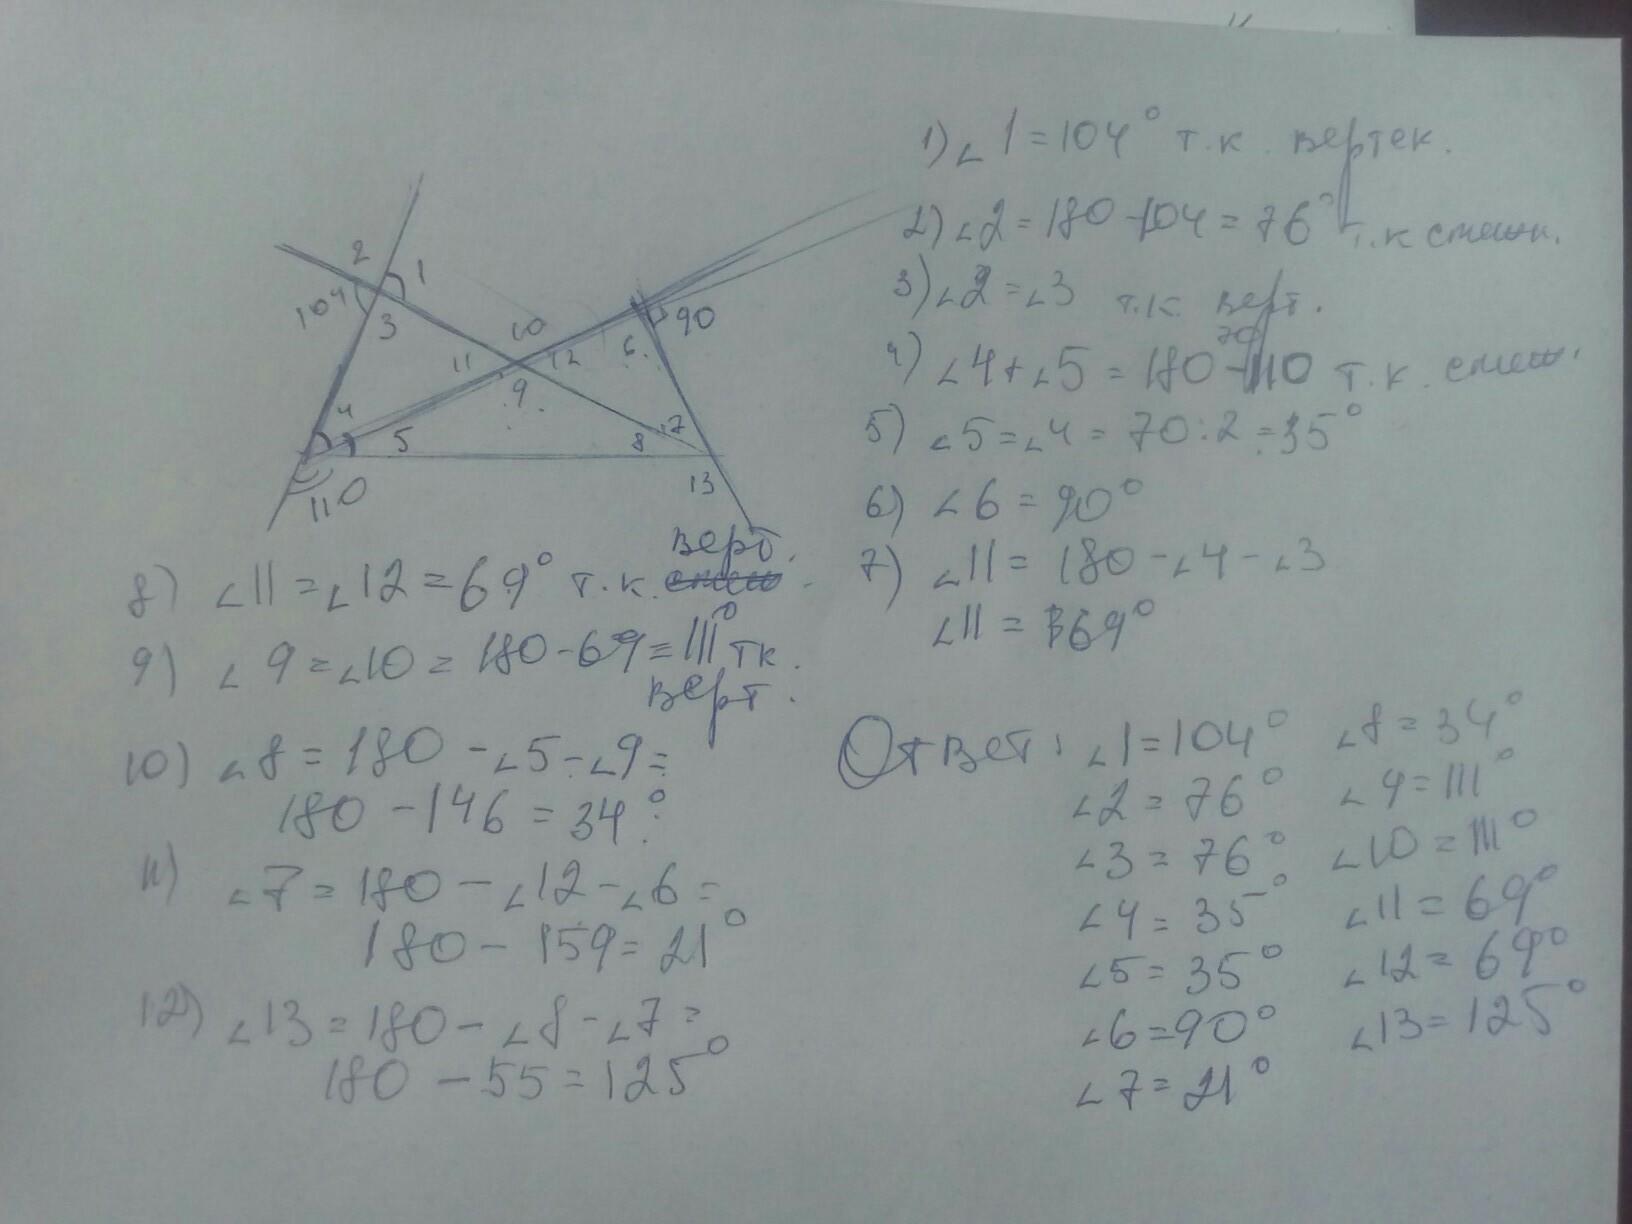 2 1
104 3
10 11 12 6 90
9
4 5 8 7
110 13
1) ∠1 = 104° т.к. вертек.
2) ∠2 = 180 - 104 = 76° т.к смешн.
3) ∠2 = ∠3 т.к. верт.
70
4) ∠4 + ∠5 = 180 - 110 т.к. смеш.
5) ∠5 = ∠4 = 70 : 2 = 35°
6) ∠6 = 90°
7) ∠11 = 180 - ∠4 - ∠3
∠11 = 69°
верт.
8) ∠11 = ∠12 = 69° т.к. смеш.
9) ∠9 = ∠10 = 180 - 69 = 111° тк.
верт.
10) ∠8 = 180 - ∠5 - ∠9 =
180 - 146 = 34°
11) ∠7 = 180 - ∠12 - ∠6 =
180 - 159 = 21°
12) ∠13 = 180 - ∠8 - ∠7 =
180 - 55 = 125°
Ответ: ∠1 = 104° ∠8 = 34°
∠2 = 76° ∠9 = 111°
∠3 = 76° ∠10 = 111°
∠4 = 35° ∠11 = 69°
∠5 = 35° ∠12 = 69°
∠6 = 90° ∠13 = 125°
∠7 = 21°